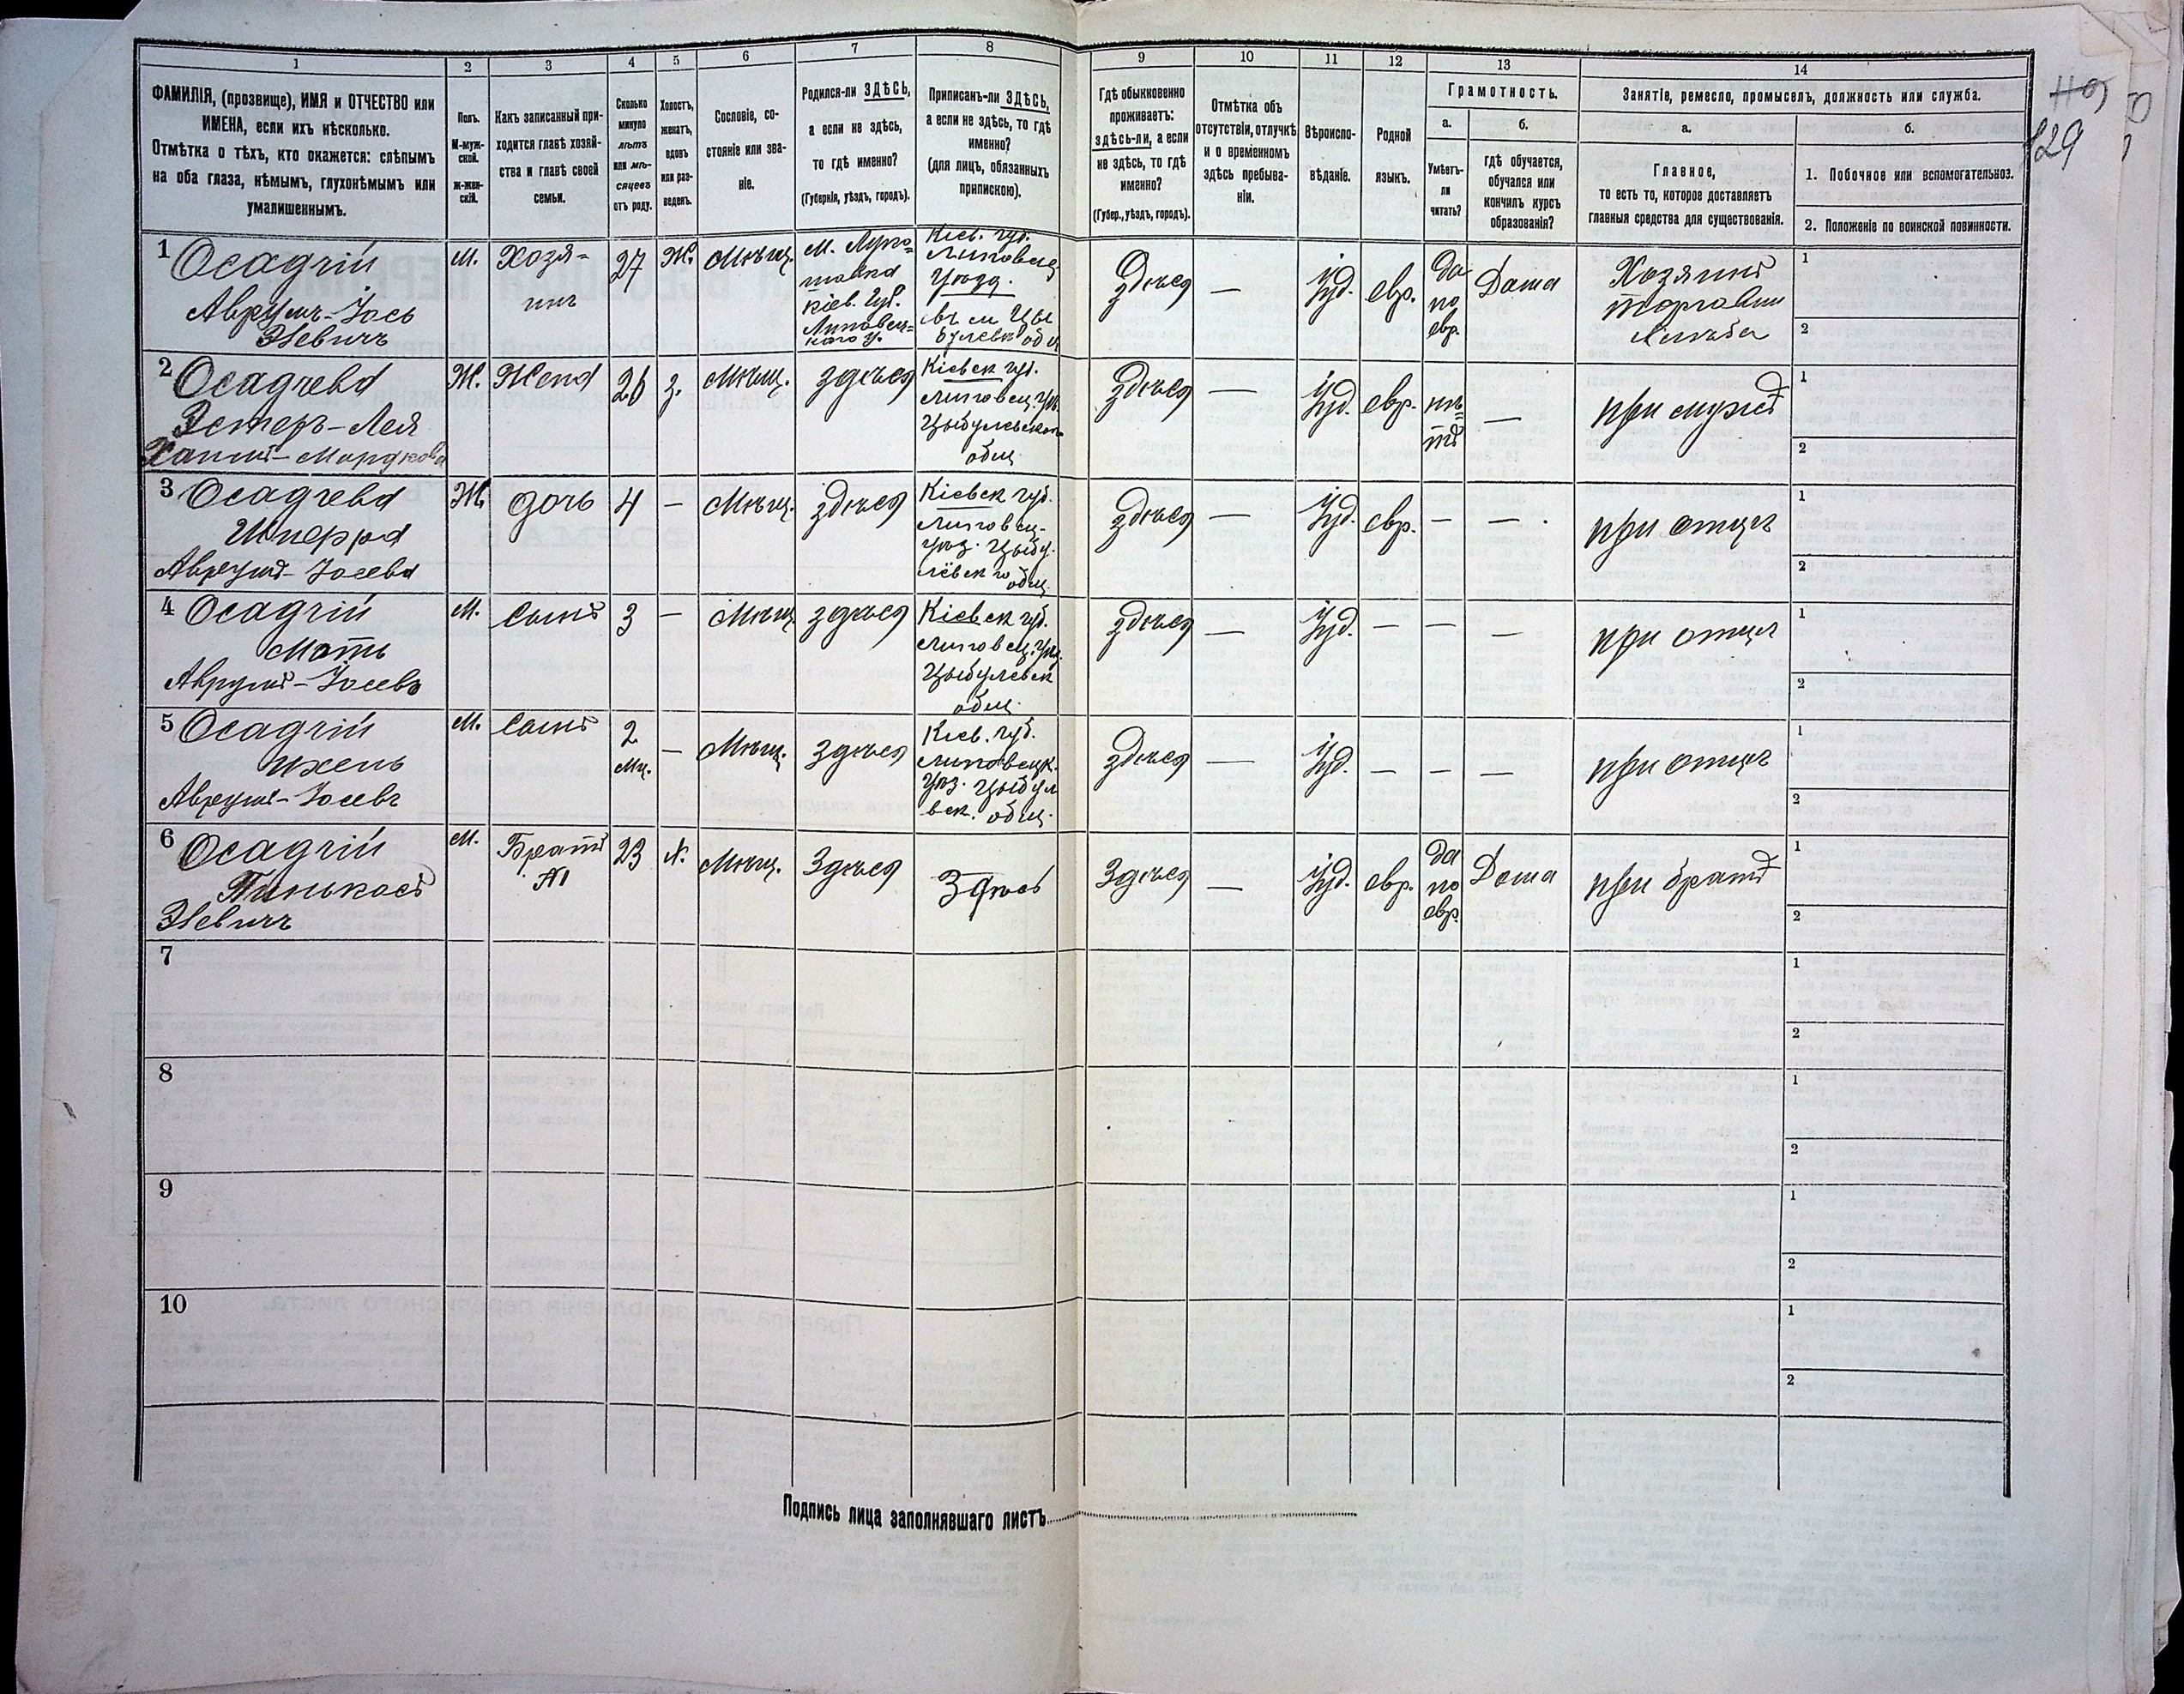 1 2 3 4 5 6 7 8 9 10 11 12 13 14
ФАМИЛІЯ, (прозвище), ИМЯ и ОТЧЕСТВО или
ИМЕНА, если ихъ нѣсколько.
Отмѣтка о тѣхъ, кто окажется: слѣпымъ
на оба глаза, нѣмымъ, глухонѣмымъ или
умалишеннымъ.
Полъ.
М-муж-
ской.
ж-жен-
скій.
Какъ записанный при-
ходится главѣ хозяй-
ства и главѣ своей
семьи.
Сколько
минуло
лѣтъ
или мѣ-
сяцевъ
отъ роду.
Холостъ,
женатъ,
вдовъ
или раз-
веденъ.
Сословіе, со-
стояніе или зва-
ніе.
Родился-ли ЗДѢСЬ,
а если не здѣсь,
то гдѣ именно?
(Губернія, уѣздъ, городъ).
Приписанъ-ли ЗДѢСЬ,
а если не здѣсь, то гдѣ
именно?
(для лицъ, обязанныхъ
припискою).
Гдѣ обыкновенно
проживаетъ:
здѣсь-ли, а если
не здѣсь, то гдѣ
именно?
(Губер., уѣздъ, городъ).
Отмѣтка объ
отсутствіи, отлучкѣ
и о временномъ
здѣсь пребыва-
ніи.
Вѣроиспо-
вѣданіе.
Родной
языкъ.
Грамотность.
а.
Умѣетъ-
ли
читать?
б.
гдѣ обучается,
обучался или
кончилъ курсъ
образованія?
Занятіе, ремесло, промыселъ, должность или служба.
а.
Главное,
то есть то, которое доставляетъ
главныя средства для существованія.
б.
1. Побочное или вспомогательное.
2. Положеніе по воинской повинности.
129
1 Осадчій
Аврумъ-Іось
М.
Хозя-
инъ
27
Ж.
Мѣщ.
Кіев. Губ.
Липовец-
каго у.
Кіев. губ.
Липовец
Уѣзд.
здѣся
—
Іуд.
евр.
да
по
евр.
Дома
Хозяинъ
торговли
1
2
2 Осадчева
Эстеръ-Лея
Ж.
Жена
26
з.
Мѣщ.
здѣся
Кіевск губ.
Липовец. Уѣз.
общ
здѣся
—
Іуд.
евр.
нѣ=
тъ
—
при мужѣ
1
2
3 Осадчева
Аврумъ-Іосева
Ж.
дочь
4
—
Мѣщ.
здѣся
Кіевск губ.
Липовец-
общ.
здѣся
—
Іуд.
евр.
—
—
при отцѣ
1
2
4 Осадчій
Моть
Аврумъ-Іосевъ
М.
Сынъ
3
—
Мѣщ
здѣся
Кіевск губ.
Липовец. Уѣз.
Цыбулевск
общ.
здѣся
—
Іуд.
—
—
—
при отцѣ
1
2
5 Осадчій
Аврумъ-Іосевъ
М.
Сынъ
2
Мц.
—
Мѣщ.
здѣся
Кіев. губ.
Липовецк.
Уѣз. Цыбул
вск. общ.
здѣся
—
Іуд.
—
—
—
при отцѣ
1
2
6 Осадчій
Пинькасъ
М.
Братъ
№1
23
Х.
Мѣщ.
Здѣся
Здѣсь
Здѣся
—
Іуд.
евр.
да
по
евр.
Дома
при братѣ
1
2
7
1
2
8
1
2
9
1
2
10
1
2
Подпись лица заполнявшаго листъ